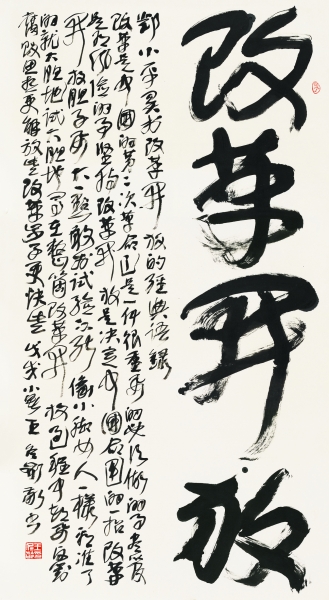 改革开放
邓小平关于改革开放的经典语录
改革是中国的第二次革命这是一件很重要的必须做的事尽管
是有风险的事坚持改革开放是决定中国命运的一招改革
开放胆子要大一些敢于试验不能像小脚女人一样看准了
的就大胆地试大胆地 在整个改革开放过程中
思想更解放些改革步子更快些戊戌小 王 书